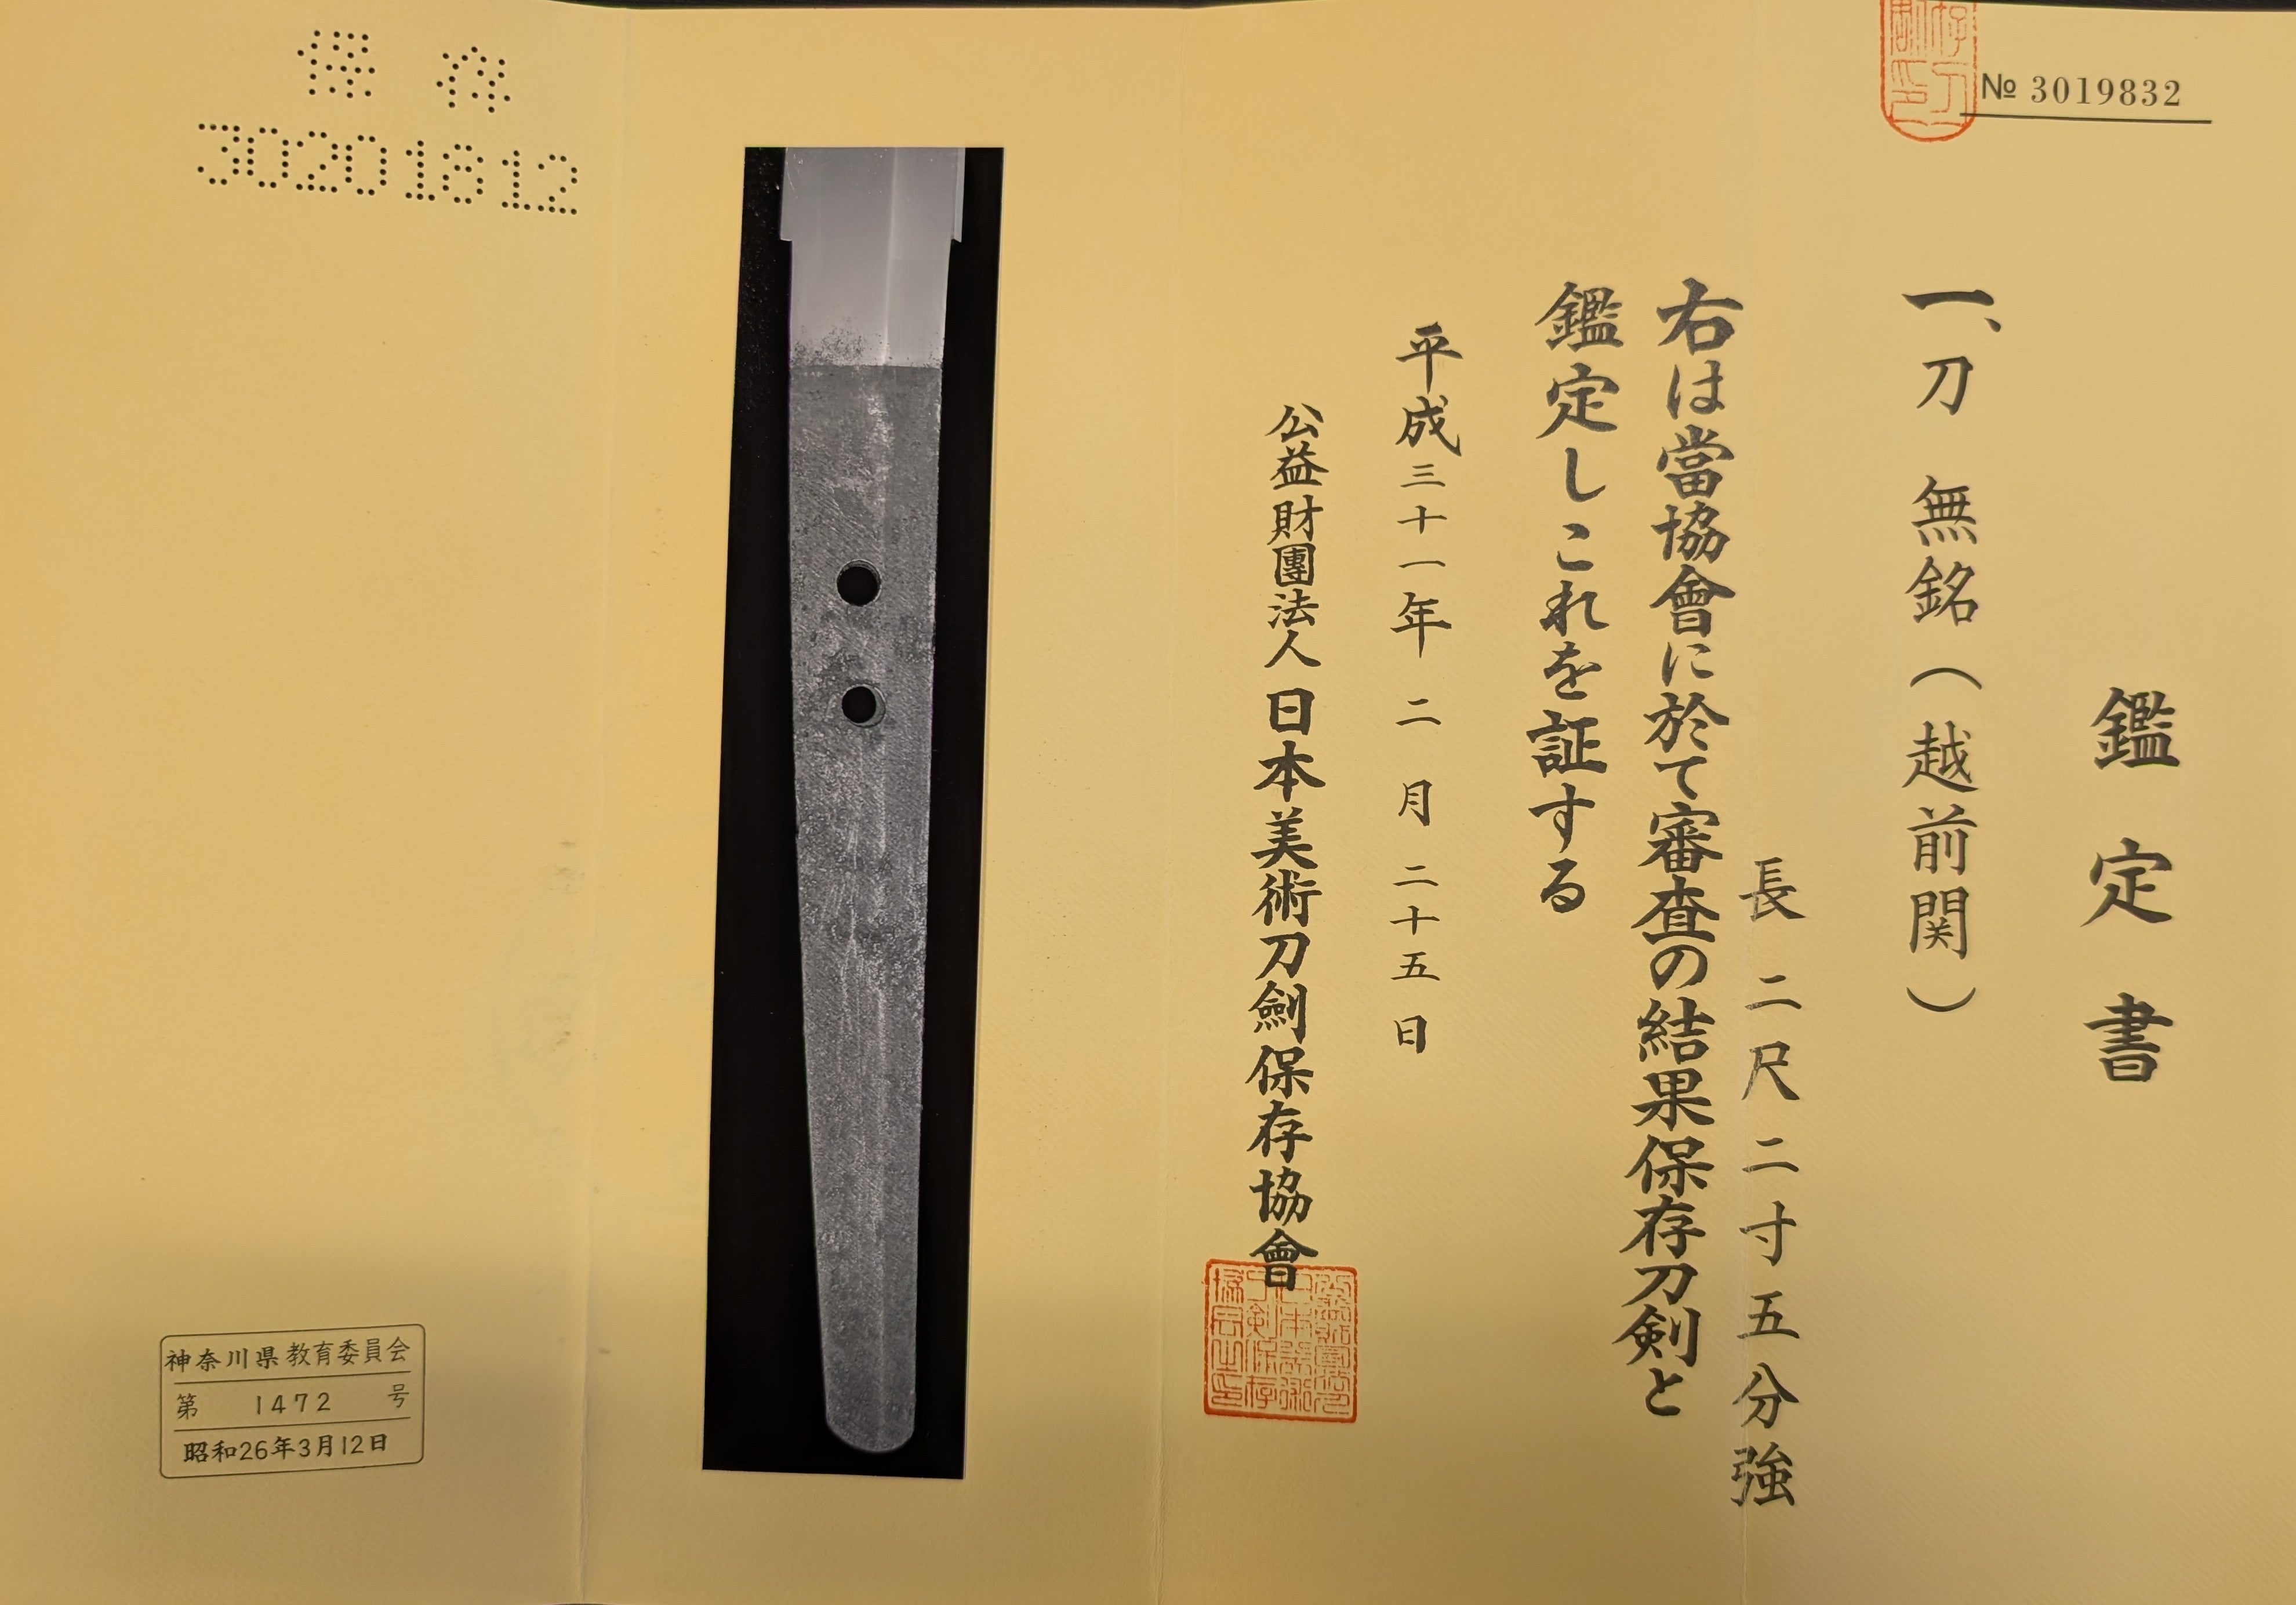 № 3019832
鑑定書
一、刀 無銘（越前関）
長 二尺二寸五分強
右は當協會に於て審査の結果保存刀剣と
鑑定しこれを証する
平成三十一年二月二十五日
公益財團法人 日本美術刀劍保存協會
保存
30201812
神奈川県教育委員会
第 1472 号
昭和26年3月12日